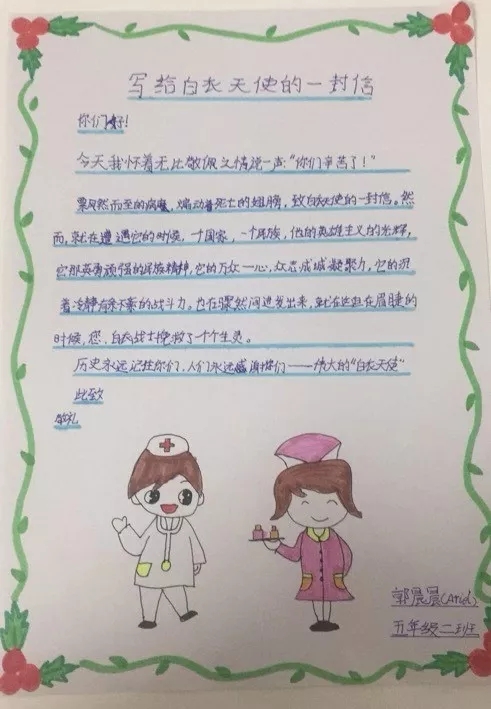 写给白衣天使的一封信
你们好!
今天我怀着无比敬佩之情说一声:"你们辛苦了!"
骤风然而至的病魔,煽动着死亡的翅膀,致白衣天使的一封信。然
而,就在遭遇它的时候,一个国家,一个民族,他的英雄主义的光辉,
它那英勇顽强的民族精神,它的万众一心,众志成城凝聚力,它的沉
着冷静的战斗力。也在骤然间迸发出来,就在这迫在眉睫的
时候,您、白衣战士挽救了一个个生灵。
历史永远记住你们,人们永远感谢你们——伟大的"白衣天使"
此致
敬礼
郭晨晨
五年级二班